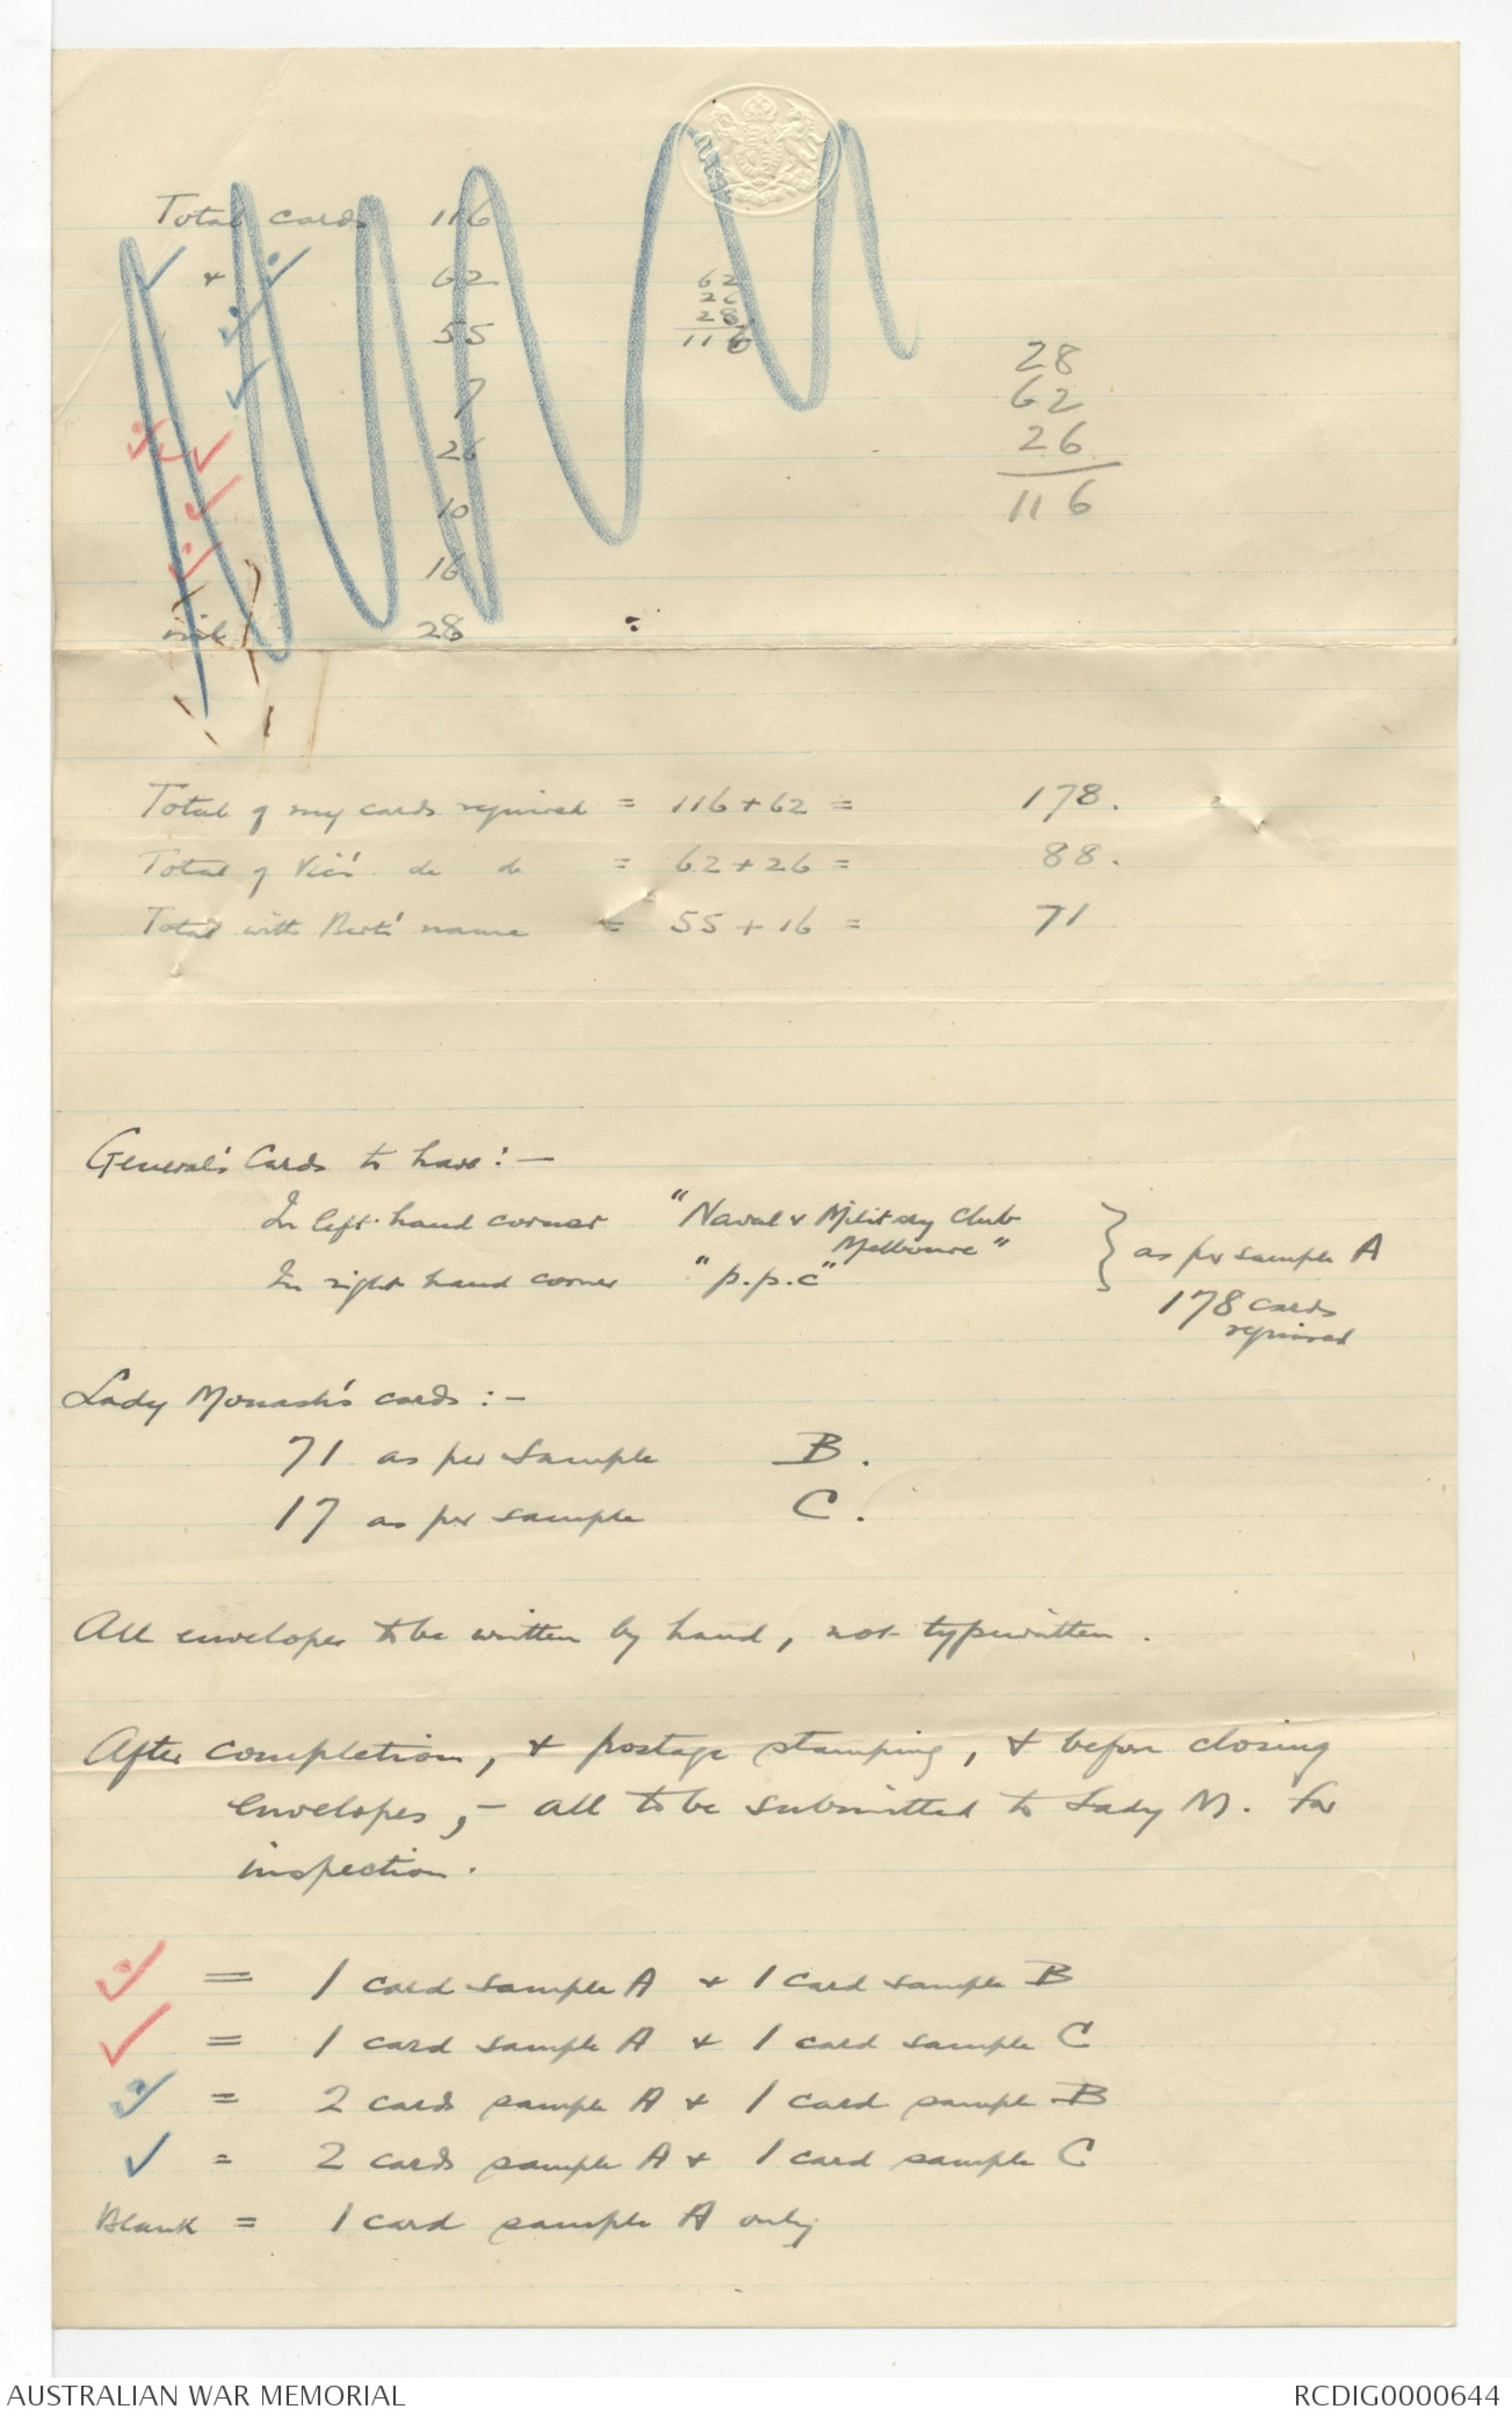 Total cards 116
✓ + ✓ 62
✓ 55
✓ 7
✓ ✓ 26
✓ 10
✓ 16
nil 28
62
26
28
116
28
62
26
116
Total of my cards required = 116 + 62 = 178.
Total of Vic's do do = 62 + 26 = 88.
Total with Bert's name = 55 + 16 = 71
General's Cards to have :-
In left hand corner "Naval & Military Club
Melbourne"
In right hand corner "p.p.c"
} as per sample A
178 cards
required
Lady Monash's cards :-
71 as per sample B.
17 as per sample C.
All envelopes to be written by hand, not typewritten.
After completion, & postage stamping, & before closing
envelopes, - all to be submitted to Lady M. for
inspection.
✓ = 1 card sample A + 1 card sample B
✓ = 1 card sample A + 1 card sample C
✓ = 2 cards sample A + 1 card sample B
✓ = 2 cards sample A + 1 card sample C
Blank = 1 card sample A only
AUSTRALIAN WAR MEMORIAL
RCDIG0000644